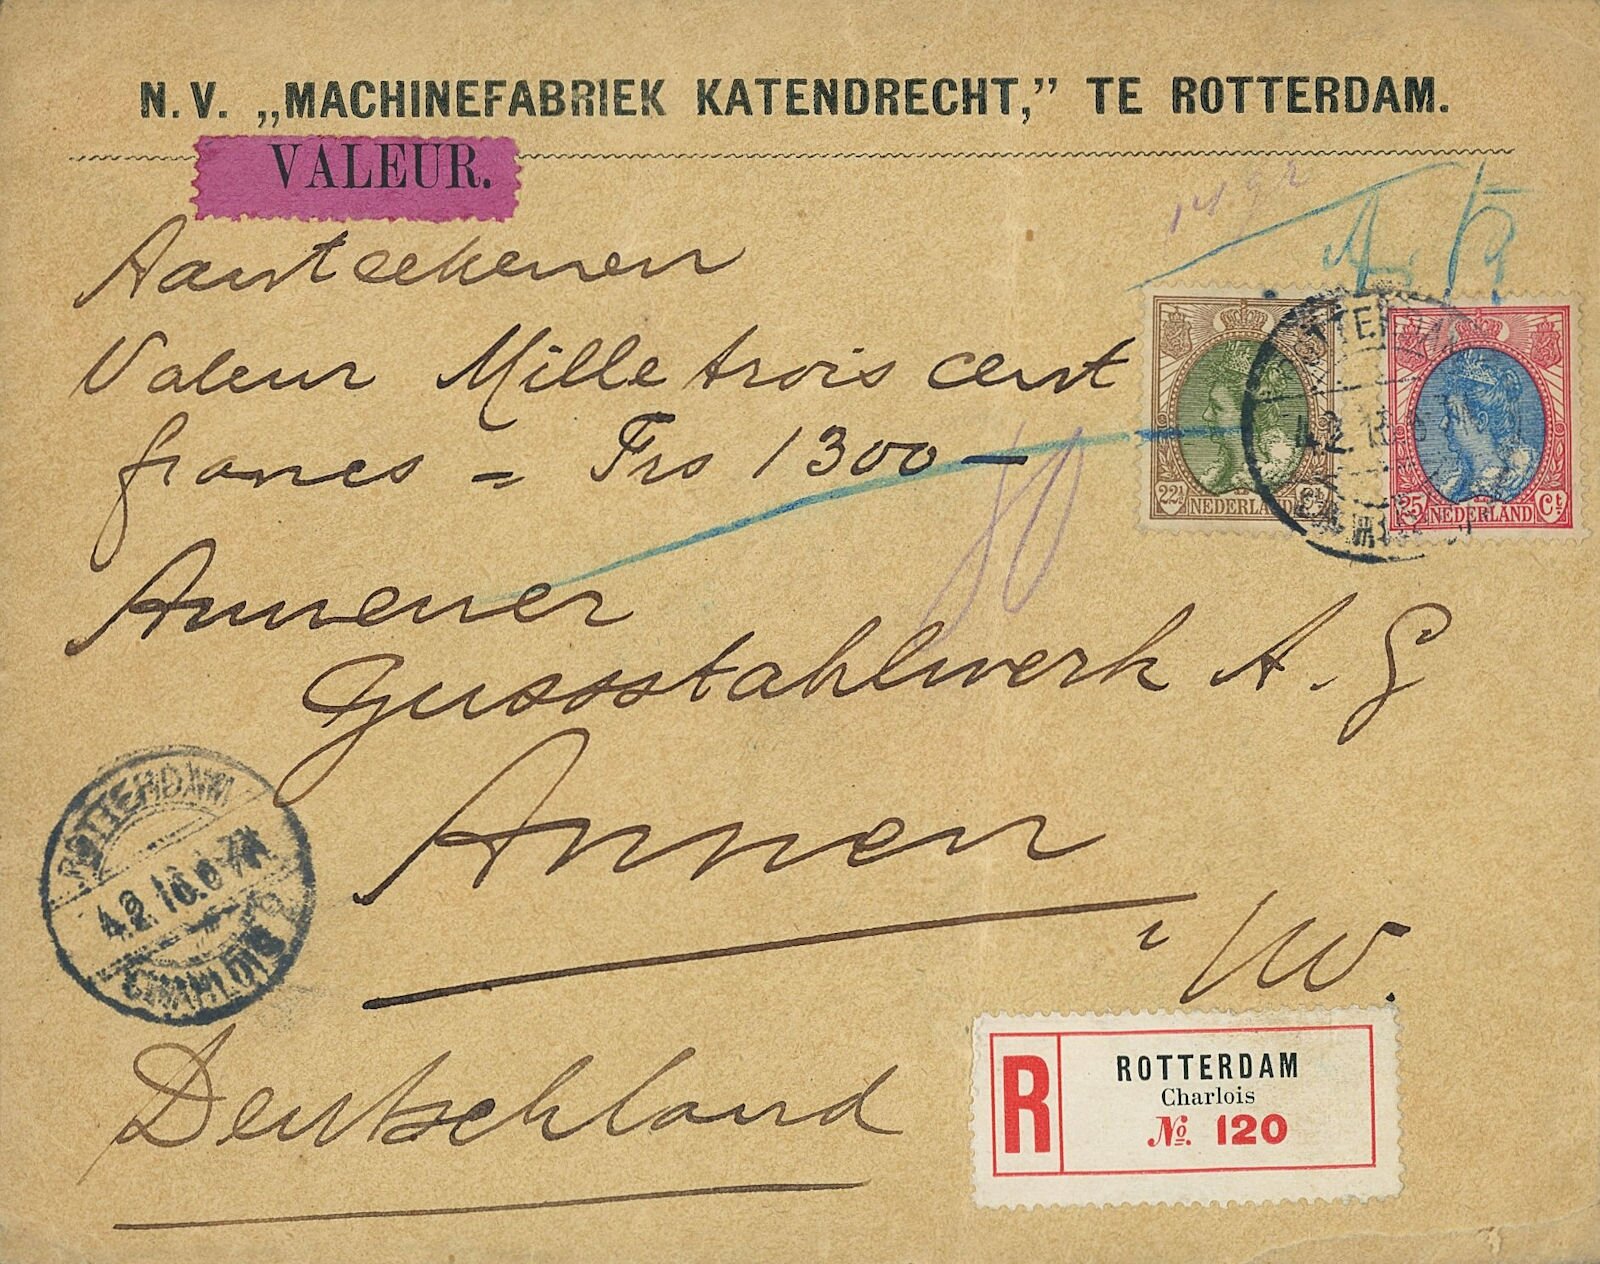 N. V. „MACHINEFABRIEK KATENDRECHT,” TE ROTTERDAM.
VALEUR.
Aanteekenen
Valeur Mille trois cent
francs = Frs 1300 —
Annener
Gussstahlwerk A. G
Annen
i/W.
Deutschland
22½ NEDERLAND
25 NEDERLAND Ct
ROTTERDAM
4.2.16.
ROTTERDAM
4.2.16.
CHARLOIS
R
ROTTERDAM
Charlois
No. 120